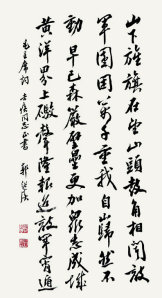 山下旌旗在望山頭鼓角相聞敵
軍圍困萬千重我自巋然不
動早已森嚴壁壘更加眾志成城
黃洋界上礮聲隆報道敵軍宵遁
毛主席詞 同志正書